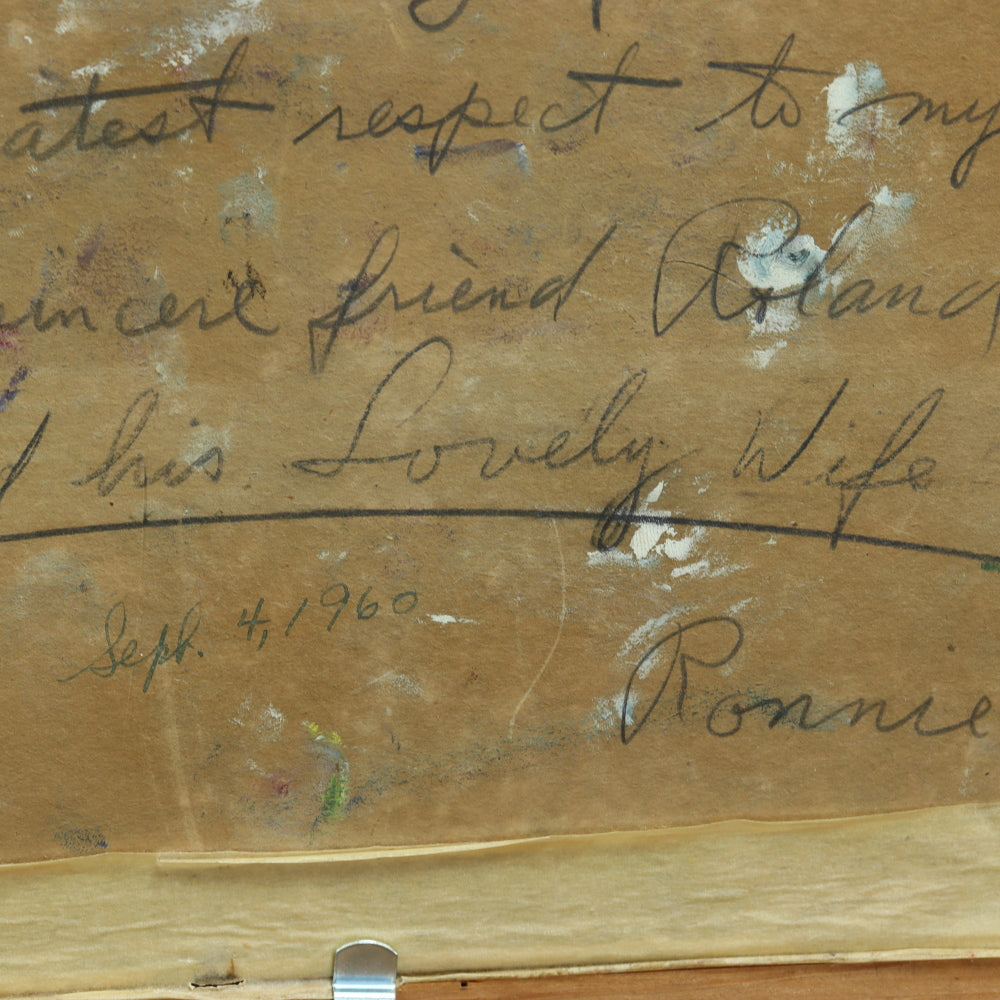 atest respect to my
sincere friend Roland
d his Lovely Wife
Sept. 4, 1960
Ronnie